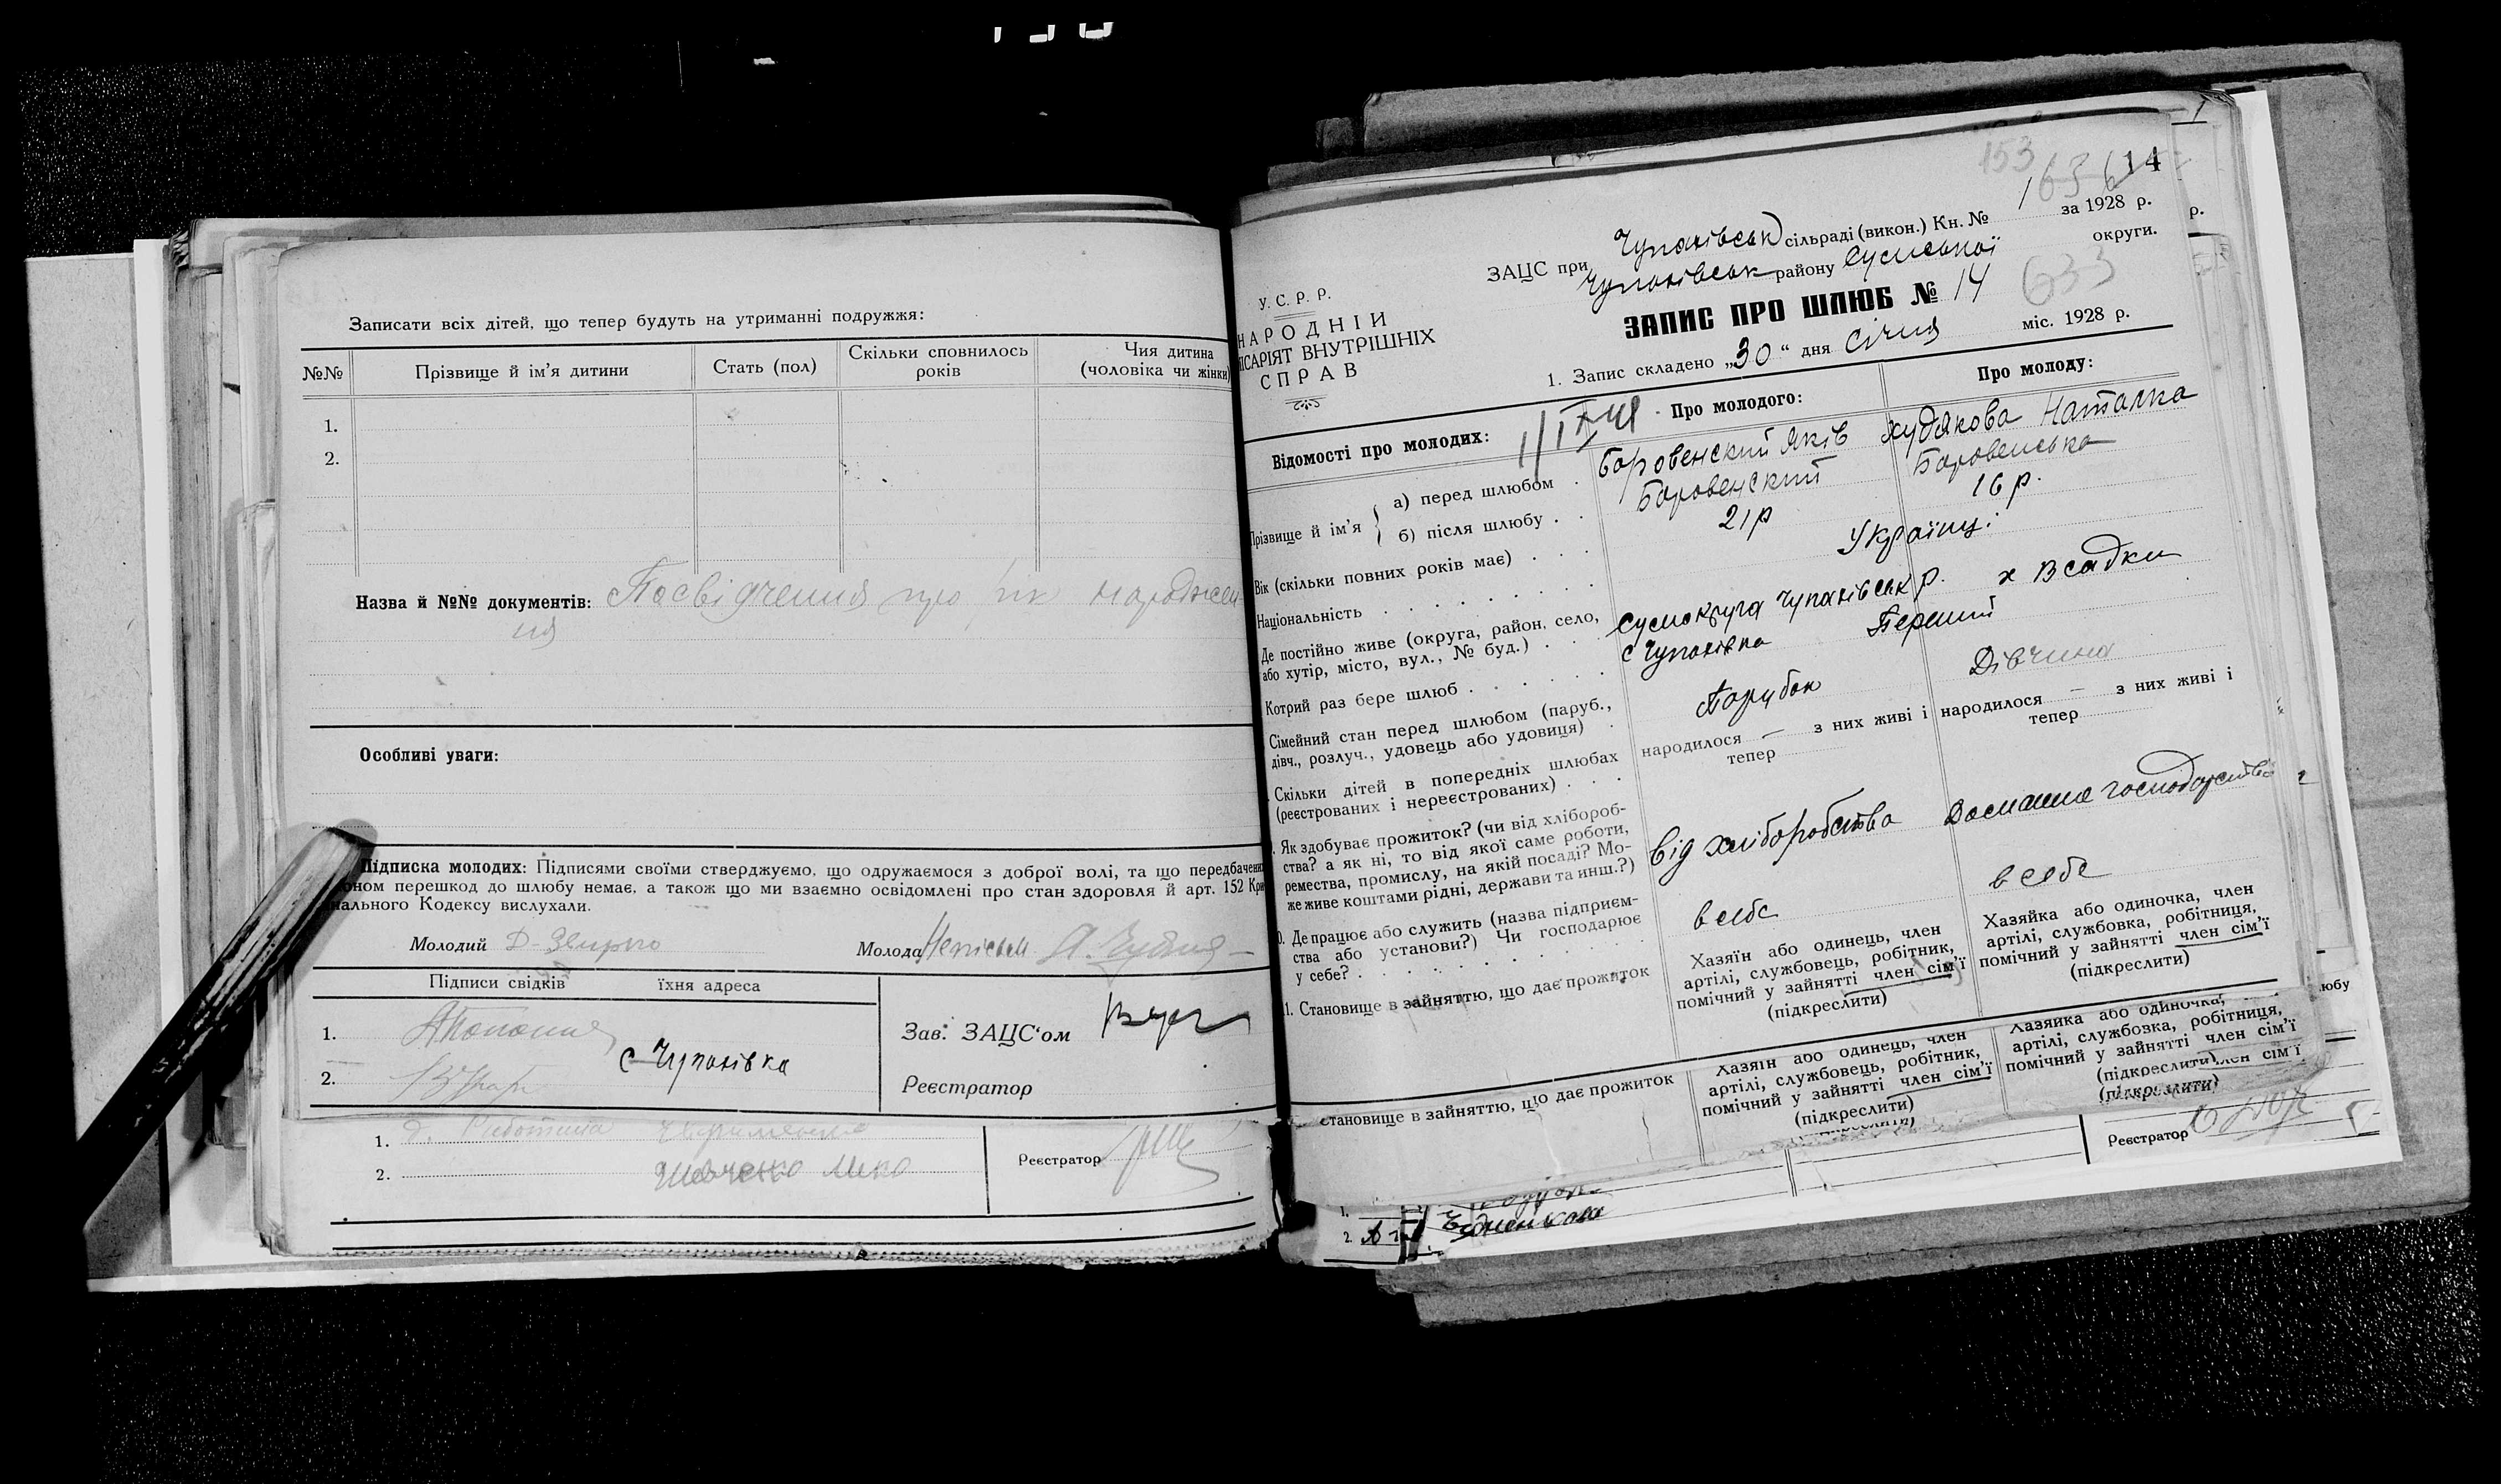 Записати всіх дітей, що тепер будуть на утриманні подружжя:
№№ Прізвище й ім'я дитини Стать (пол) Скільки сповнилось років Чия дитина (чоловіка чи жінки)
1.
2.
Назва й №№ документів: Посвідчення про рік народжен
ня
Особливі уваги:
Підписка молодих: Підписями своїми стверджуємо, що одружаємося з доброї волі, та що передбачених
оном перешкод до шлюбу немає, а також що ми взаємно освідомлені про стан здоровля й арт. 152 Кри
нального Кодексу вислухали.
Молодий Молода
Підписи свідків їхня адреса
1.
с Чупахівка
2.
Зав. ЗАЦС'ом
Реєстратор
1.
2. Шевченко
Реєстратор
153 163 14
ЗАЦС при Чупахівськ сільраді (викон.) Кн. № 1 за 1928 р.
Чупахівськ району Сумської округи.
У. С. Р. Р.
НАРОДНІЙ
ІСАРІЯТ ВНУТРІШНІХ
СПРАВ
ЗАПИС ПРО ШЛЮБ № 14
633
1. Запис складено „30“ дня Січня міс. 1928 р.
Відомості про молодих: Про молодого: Про молоду:
Прізвище й ім'я
а) перед шлюбом Боровенский Яків Худякова Наталка
б) після шлюбу Боровенский Боровенська
Вік (скільки повних років має) 21р 16 р.
Національність Українці
Де постійно живе (округа, район, село,
або хутір, місто, вул., № буд.)
Сумокруга Чупахівськ р. х Всадки
с Чупахівка
Котрий раз бере шлюб Перший
Сімейний стан перед шлюбом (паруб.,
дівч., розлуч., удовець або удовиця)
Парубок Дівчина
Скільки дітей в попередніх шлюбах
(реєстрованих і нереєстрованих)
народилося — з них живі і тепер
народилося — з них живі і тепер
Як здобуває прожиток? (чи від хлібороб-
ства? а як ні, то від якої саме роботи,
ремества, промислу, на якій посаді? Мо-
же живе коштами рідні, держави та инш.?)
від хліборобства Домашнє господарство
Де працює або служить (назва підприєм-
ства або установи?) Чи господарює
у себе?
в себе в себе
11. Становище в зайняттю, що дає прожиток
Хазяїн або одинець, член
артілі, службовець, робітник,
помічний у зайнятті член сім'ї
(підкреслити)
Хазяйка або одиночка, член
артілі, службовка, робітниця,
помічний у зайнятті член сім'ї
(підкреслити)
становище в зайняттю, що дає прожиток
Хазяїн або одинець, член
артілі, службовець, робітник,
помічний у зайнятті член сім'ї
(підкреслити)
Хазяйка або одиночка,
артілі, службовка, робітниця,
помічний у зайнятті член сім'ї
(підкреслити)
член сім'ї
(підкреслити)
Реєстратор
1.
2.